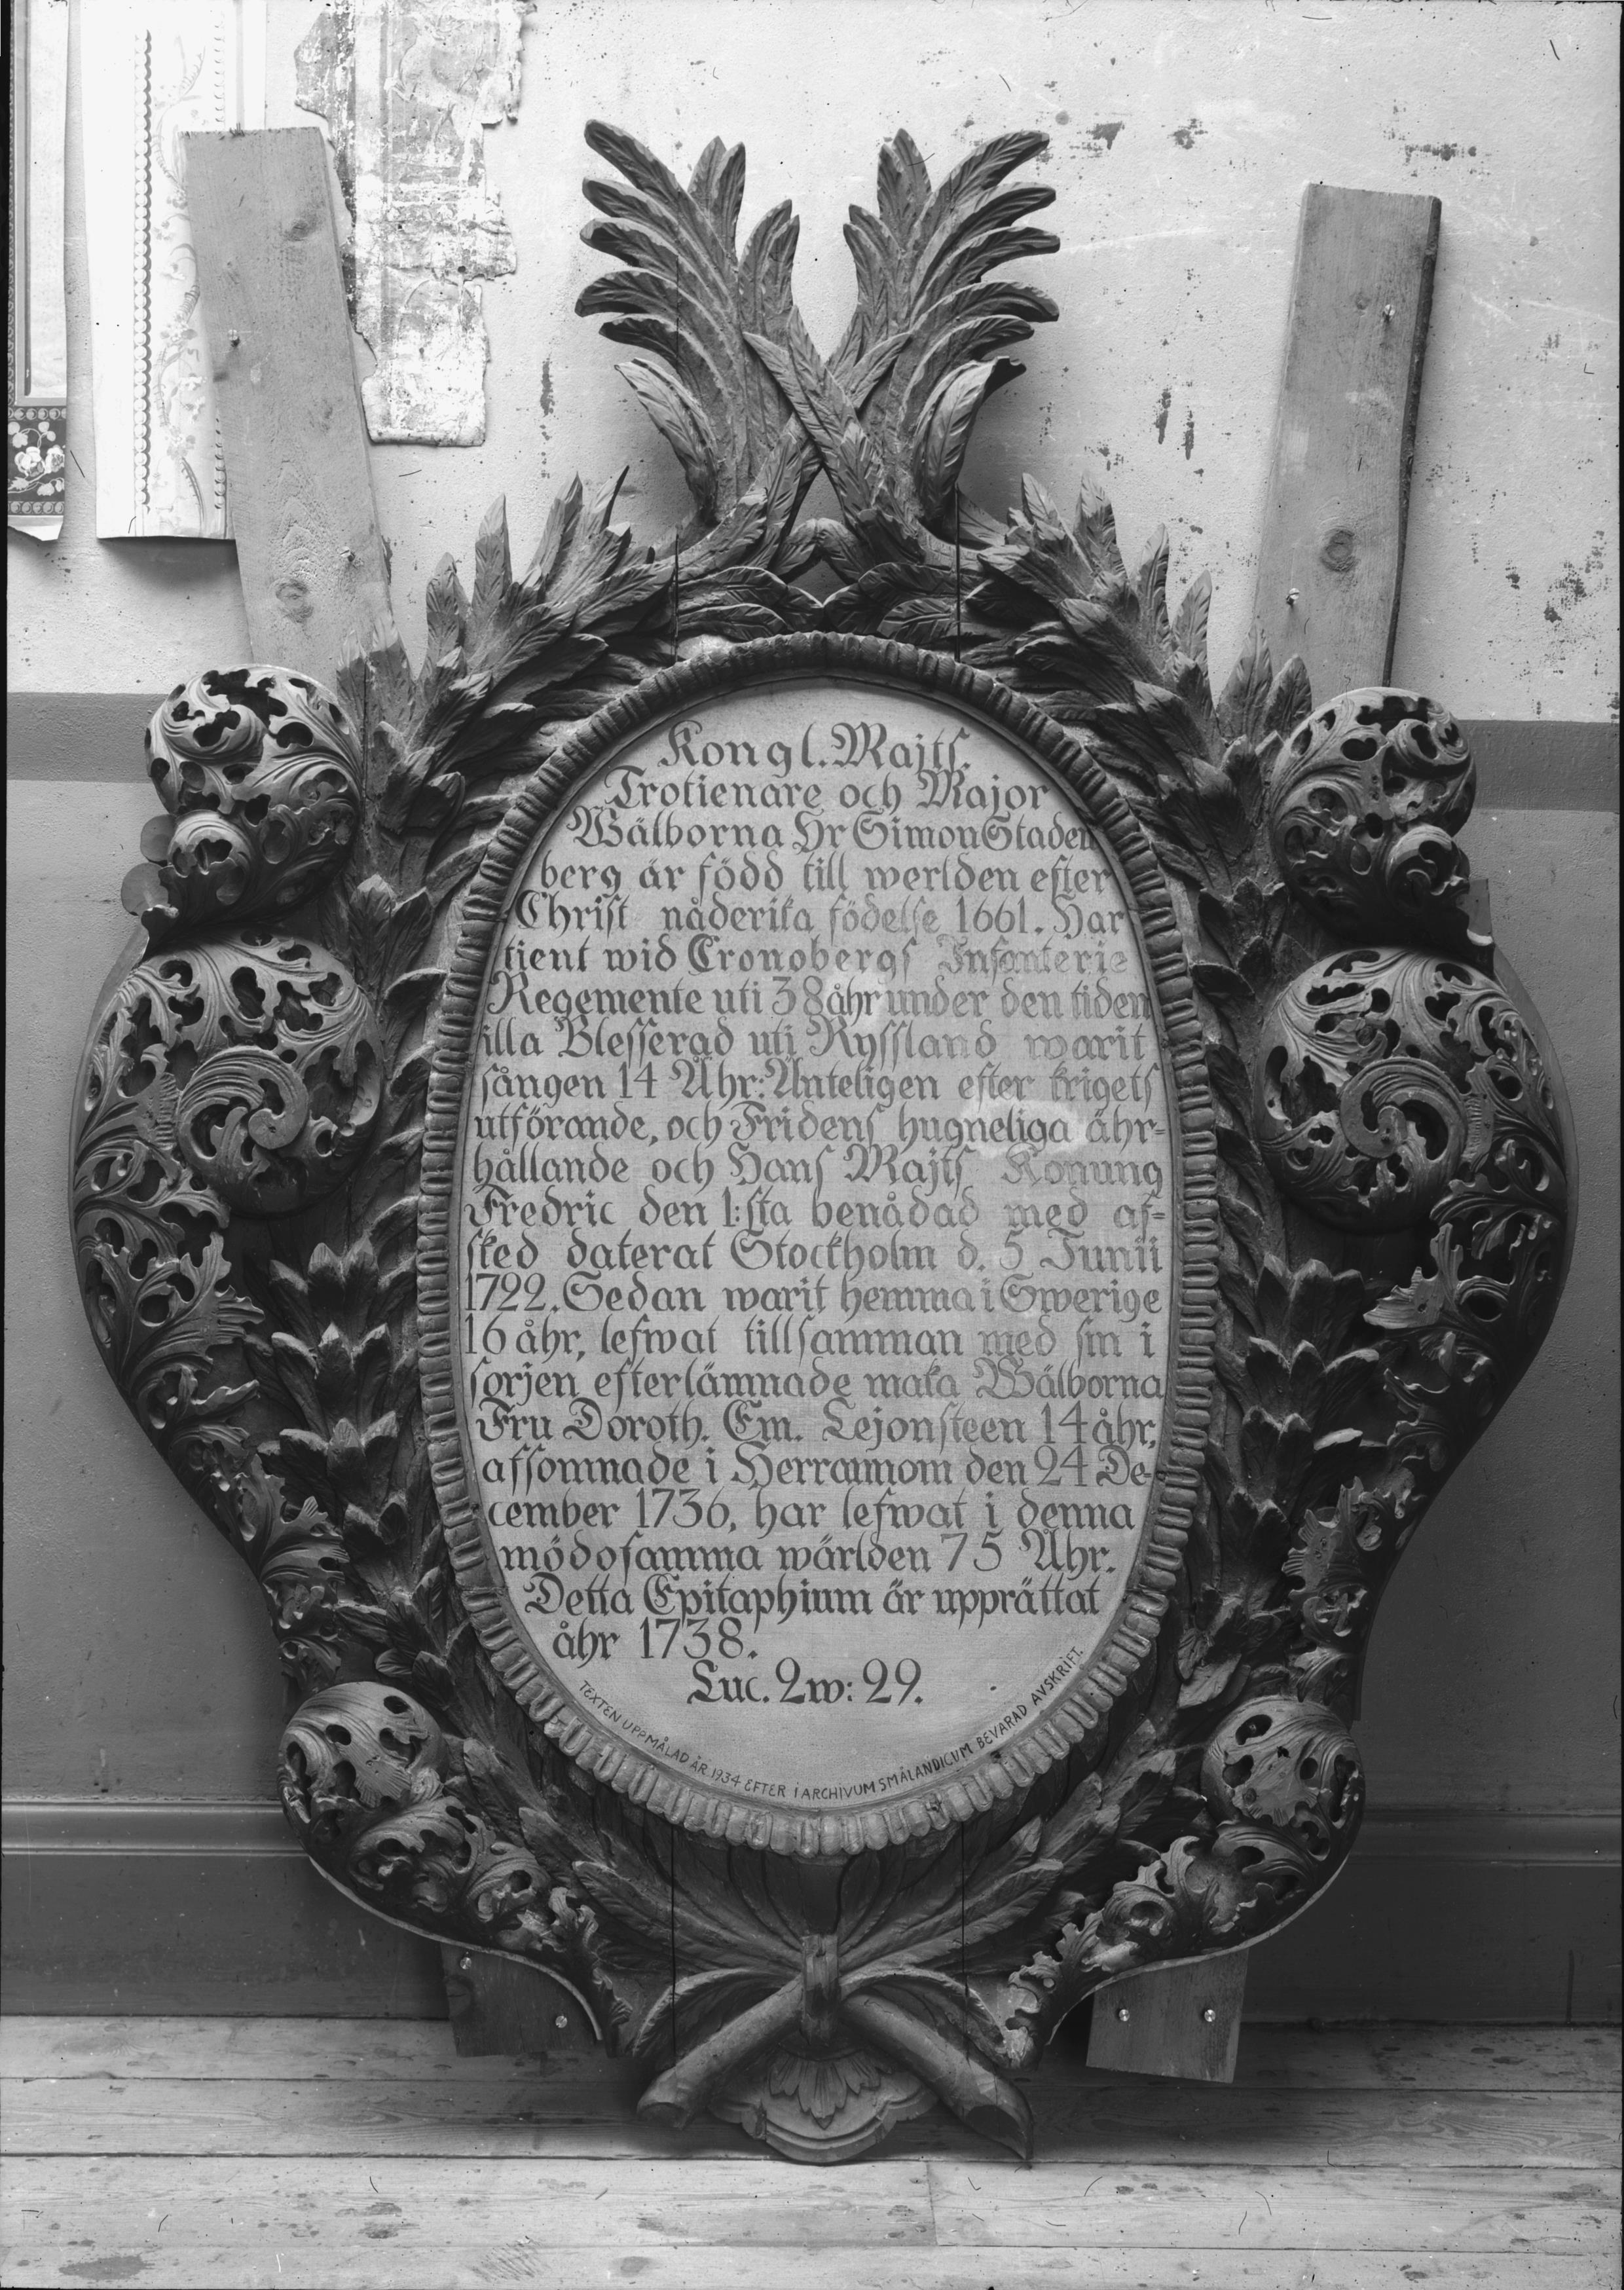 Kongl. Majts.
Trotienare och Major
Wälborna Hr Simon Staden
berg är född till werlden efter
Christ nåderika födelse 1661. Har
tient wid Cronobergs Infanterie
Regemente uti 38 åhr under den tiden
illa Blesserad uti Ryssland warit
fången 14 Åhr: Änteligen efter krigets
utförande, och Fridens hugneliga åhr-
hållande och Hans Majts Konung
Fredric den 1:sta benådad med af-
sked daterat Stockholm d. 5 Junii
1722. Sedan warit hemma i Swerige
16 åhr, lefwat tillsamman med sin i
sorjen efterlämnade maka Wälborna
Fru Doroth. Em. Lejonsteen 14 åhr,
afsomnade i Herranom den 24 De-
cember 1736, har lefwat i denna
mödosamma wärlden 75 Åhr.
Detta Epitaphium är upprättat
åhr 1738.
Luc. 2w: 29.
TEXTEN UPPMÅLAD ÅR 1934 EFTER I ARCHIVUM SMÅLANDICUM BEVARAD AVSKRIFT.